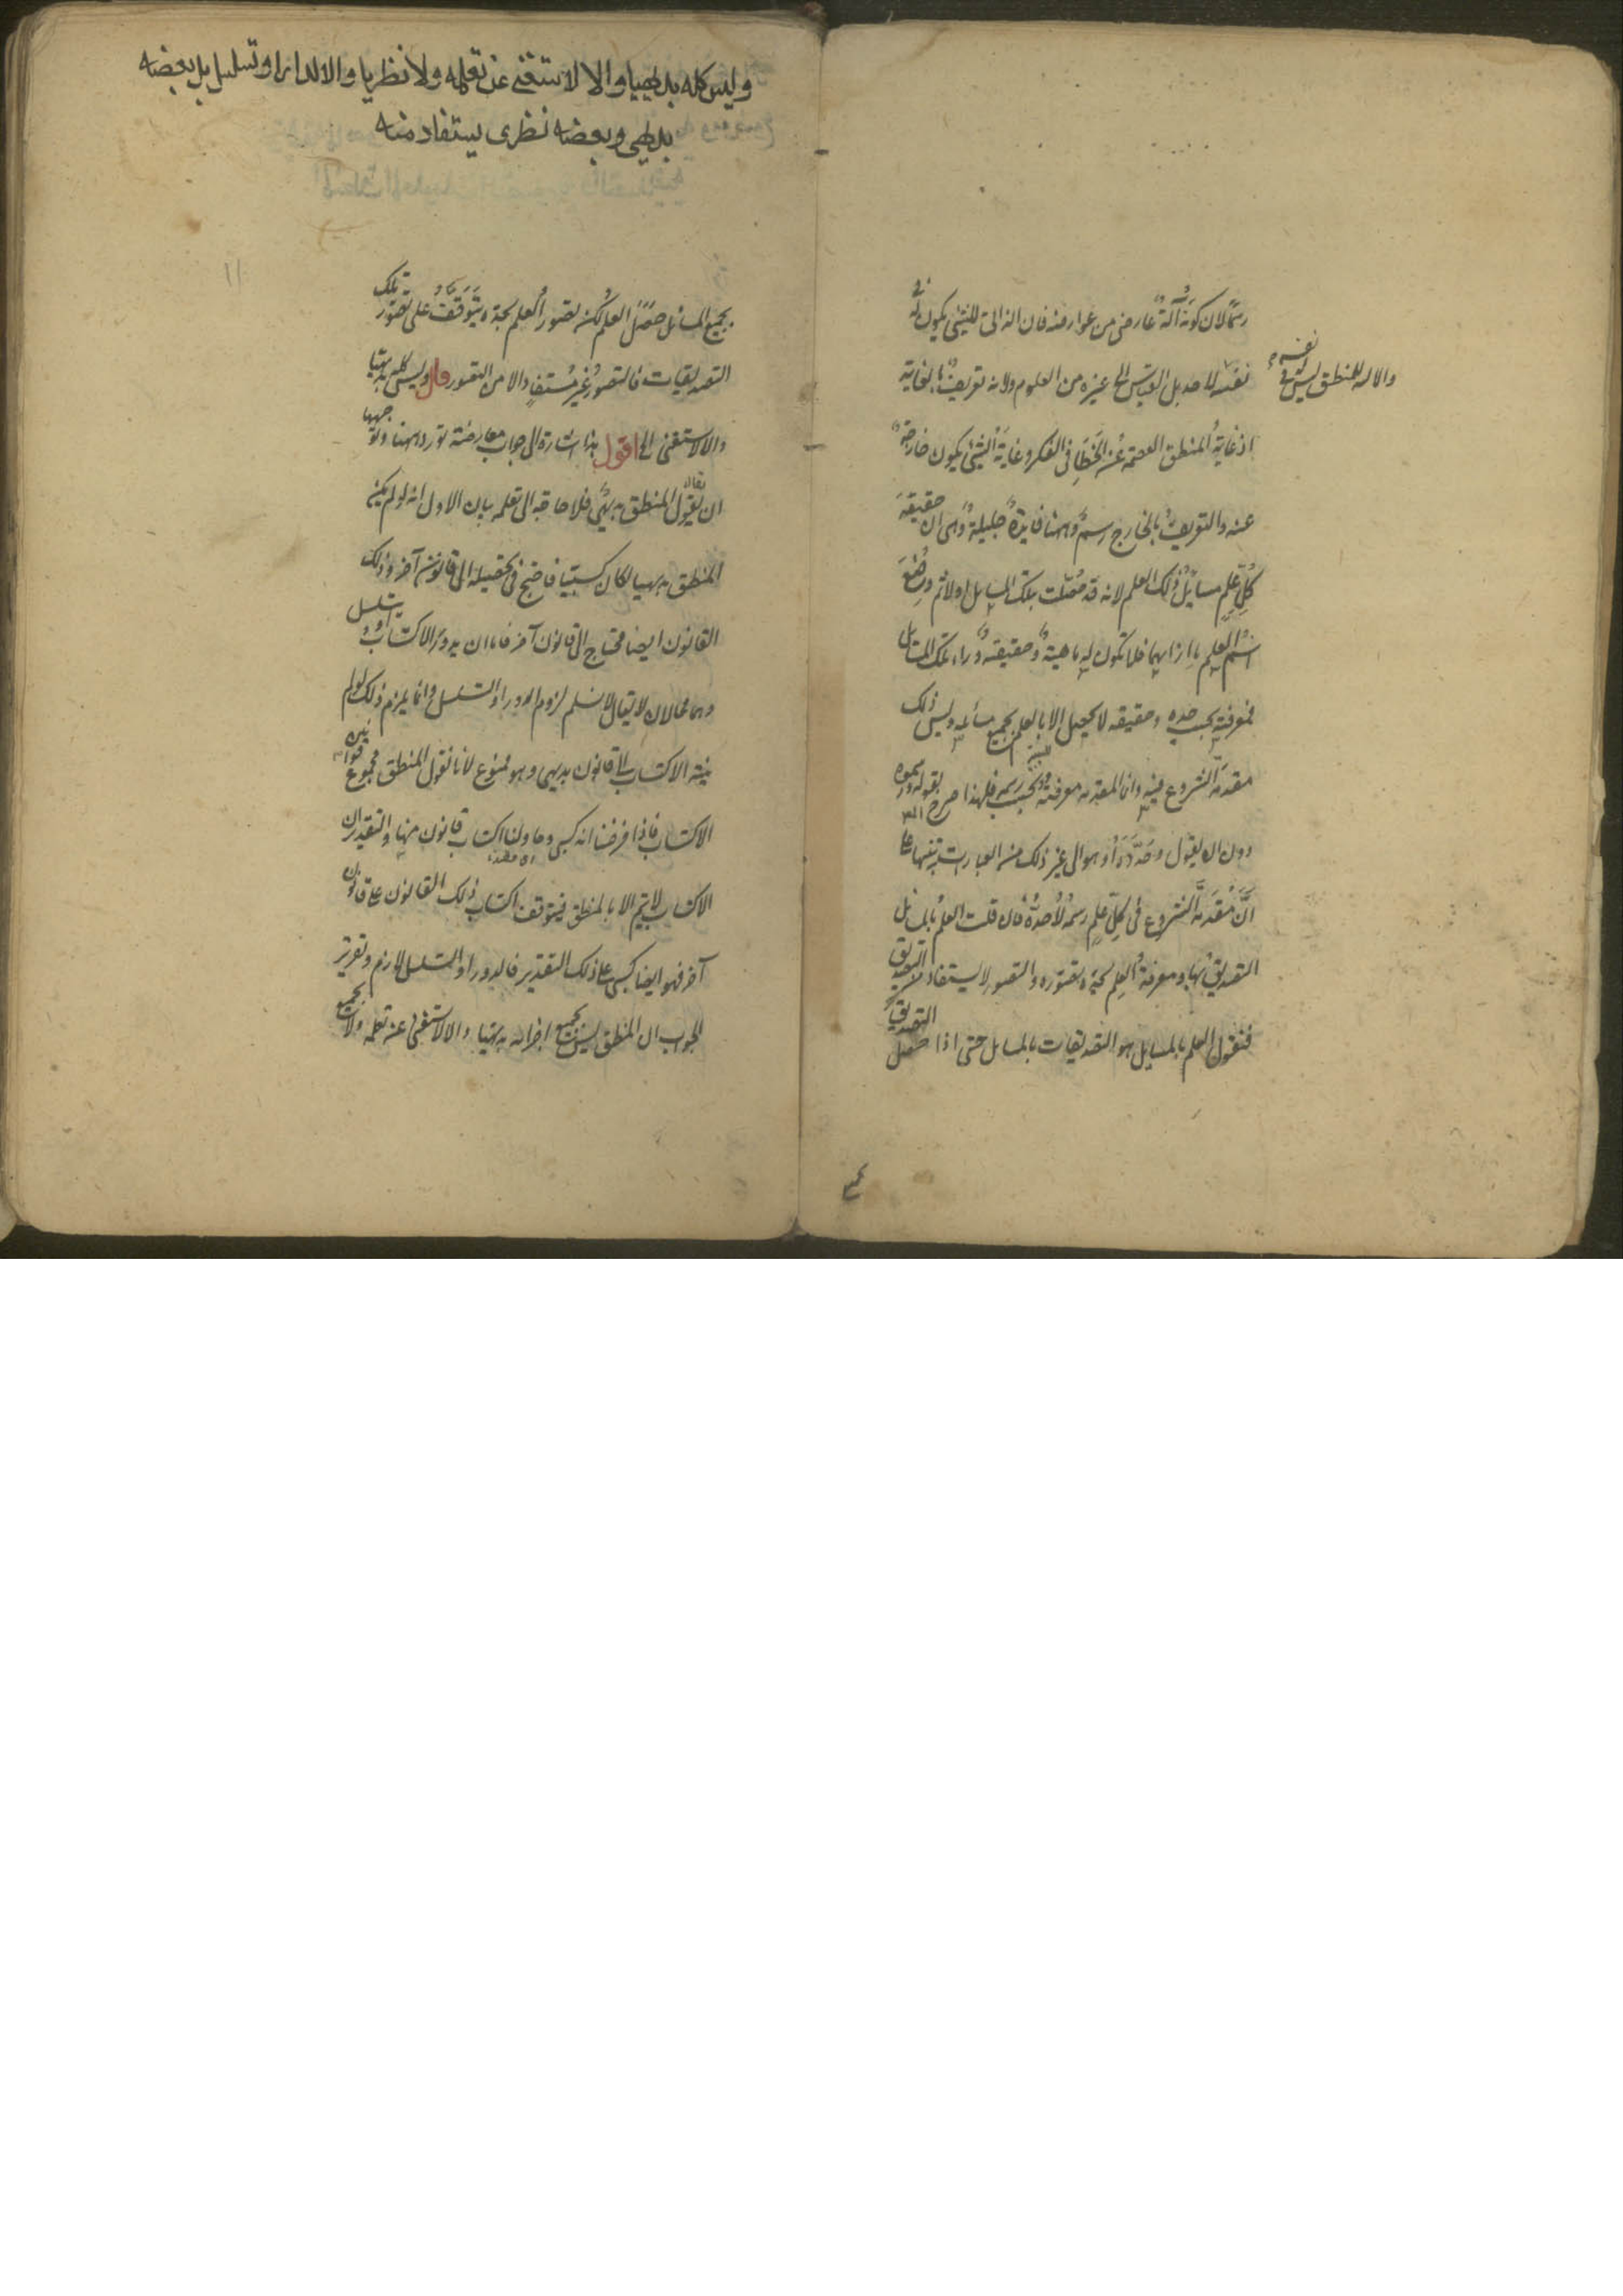 رسما لان كونه آلة عارض من عوارضه فان الذاتى للشئ يكون له فى
نفسه لا بل بالقياس الى غيره من العلوم ولانه تعريف بالغاية
والالة للمنطق ليس له فى نفسه
اذ غاية المنطق العصمة عن الخطاء فى الفكر وغاية الشئ يكون خارجة
عنه والتعريف بالخارج رسم وههنا فايدة جليلة وهى ان حقيقة
كل علم مسائل ذلك العلم لانه قد حصلت تلك المسايل اولا ثم وضع
اسم العلم بازائها فلا تكون له ماهية وحقيقة وراء تلك المسائل
فمعرفته بحسب حده وحقيقته لا يحصل الا بالعلم بجميع مسائله وليس ذلك
مقدمة الشروع فيه وان المقدمة معرفته بحسب رسمه فلهذا صرح بقوله ورسموه
دون ان يقول وحدوده او هو الى غير ذلك من العبارات تنبيها على
ان مقدمة الشروع فى كل علم رسمه لا حده فان قلت العلم بالمسائل
التصديق بها ومعرفة العلم بحده تصوره والتصور لا يستفاد من التصديق
فنقول العلم بالمسايل هو التصديقات بالمسايل حتى اذا حصل التصديق
وليس كله بديهيا والا لاستغنى عن تعلمه ولا نظريا والا لدار او تسلسل بل بعضه
بديهى وبعضه نظرى يستفاد منه
بجميع المسائل حصل العلم لكن تصور العلم بحده يتوقف على تصور تلك
التصديقات فالتصور غير مستفاد الا من التصور قال وليس كله بديهيا
والا لاستغنى الخ اقول هذا اشارة الى جواب معارضة تورد ههنا وتوجيهها
ان يقال المنطق بديهى فلا حاجة الى تعلمه بيان الاول انه لو لم يكن
المنطق بديهيا لكان كسبيا فاحتيج فى تحصيله الى قانون آخر وذلك
القانون ايضا محتاج الى قانون آخر فاما ان يدور الاكتساب او يتسلسل
وهما محالان لا يقال لا نسلم لزوم الدور او التسلسل وانما يلزم ذلك لو لم
ينته الاكتساب الى قانون بديهى وهو ممنوع لانا نقول المنطق مجموع قوانين
الاكتساب فاذا فرضنا انه كسبى وحاولنا اكتساب قانون منها والتقدير ان
الاكتساب لا يتم الا بالمنطق فيتوقف اكتساب ذلك القانون على قانون
آخر فهو ايضا كسبى على ذلك التقدير فالدور او التسلسل لازم وتقرير
الجواب ان المنطق ليس بجميع اجزائه بديهيا والا لاستغنى عنه تعلمه ولا بجميع